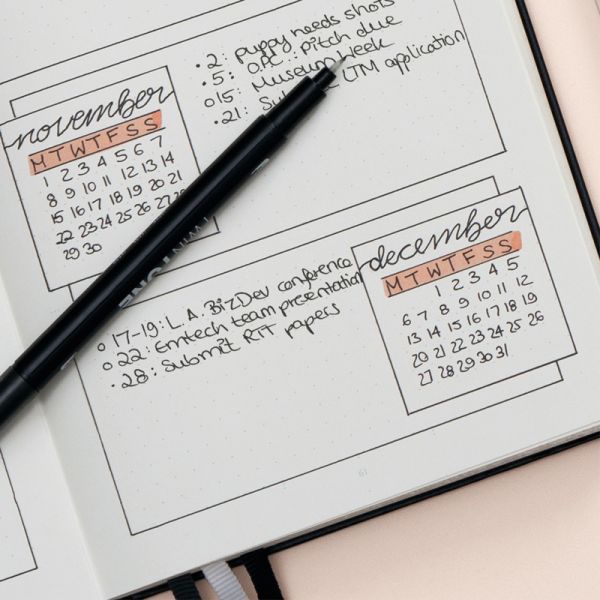 • 2: puppy needs shots
• 5: O.P.C. pitch due
o 15: Museum Week
• 21: LTM application
november
M T W T F S S
1 2 3 4 5 6 7
8 9 10 11 12 13 14
15 16 17 18 19 20 21
22 23 24 25 26 27
29 30
TWINTONE
o 17-19: L.A. BizDev conference
o 22: Emtech team presentation
• 28: Submit RTT papers
december
M T W T F S S
1 2 3 4 5
6 7 8 9 10 11 12
13 14 15 16 17 18 19
20 21 22 23 24 25 26
27 28 29 30 31
61